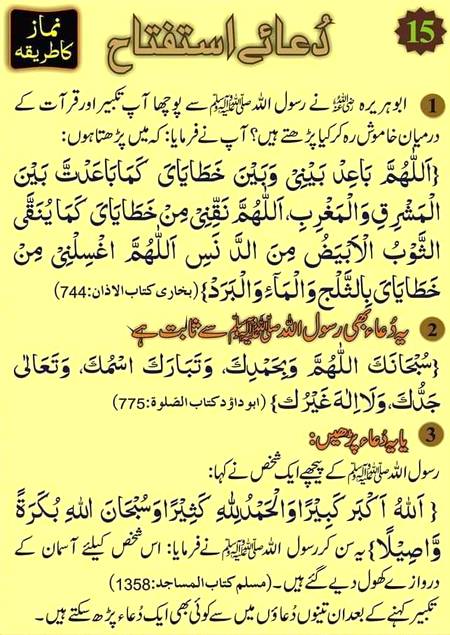 15
دُعائے استفتاح
نماز
کا طریقہ
1 ابوہریرہ رضی اللہ عنہ نے رسول اللہ ﷺ سے پوچھا آپ تکبیر اور قرآت کے
درمیان خاموش رہ کر کیا پڑھتے ہیں؟ آپ نے فرمایا: کہ میں پڑھتا ہوں:
{اَللّٰهُمَّ بَاعِدْ بَيْنِيْ وَبَيْنَ خَطَايَايَ كَمَا بَاعَدْتَّ بَيْنَ
الْمَشْرِقِ وَالْمَغْرِبِ، اَللّٰهُمَّ نَقِّنِيْ مِنْ خَطَايَايَ كَمَا يُنَقَّى
الثَّوْبُ الْاَبْيَضُ مِنَ الدَّنَسِ اَللّٰهُمَّ اغْسِلْنِيْ مِنْ
خَطَايَايَ بِالثَّلْجِ وَالْمَآءِ وَالْبَرَدِ} (بخاری کتاب الاذان:744)
2 یہ دُعاء بھی رسول اللہ ﷺ سے ثابت ہے
{سُبْحَانَكَ اللّٰهُمَّ وَبِحَمْدِكَ، وَتَبَارَكَ اسْمُكَ، وَتَعَالٰى
جَدُّكَ، وَلَا اِلٰهَ غَيْرُكَ} (ابو داؤد کتاب الصلوة:775)
3 یا یہ دُعاء پڑھیں:
رسول اللہ ﷺ کے پیچھے ایک شخص نے کہا:
{اَللهُ اَكْبَرُ كَبِيْرًا وَالْحَمْدُ لِلّٰهِ كَثِيْرًا وَسُبْحَانَ اللهِ بُكْرَةً
وَّاَصِيْلًا} یہ سن کر رسول اللہ ﷺ نے فرمایا: اس شخص کیلئے آسمان کے
دروازے کھول دیے گئے ہیں۔ (مسلم کتاب المساجد:1358)
تکبیر کہنے کے بعد ان تینوں دُعاؤں میں سے کوئی بھی ایک دُعاء پڑھ سکتے ہیں۔